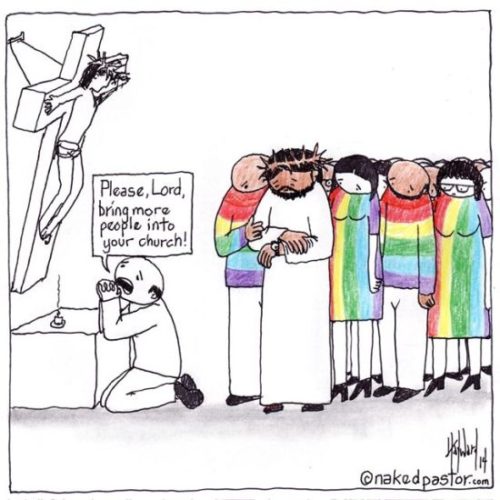 Please, Lord,
bring more
people into
your church!
Hayward
14
©nakedpastor.com